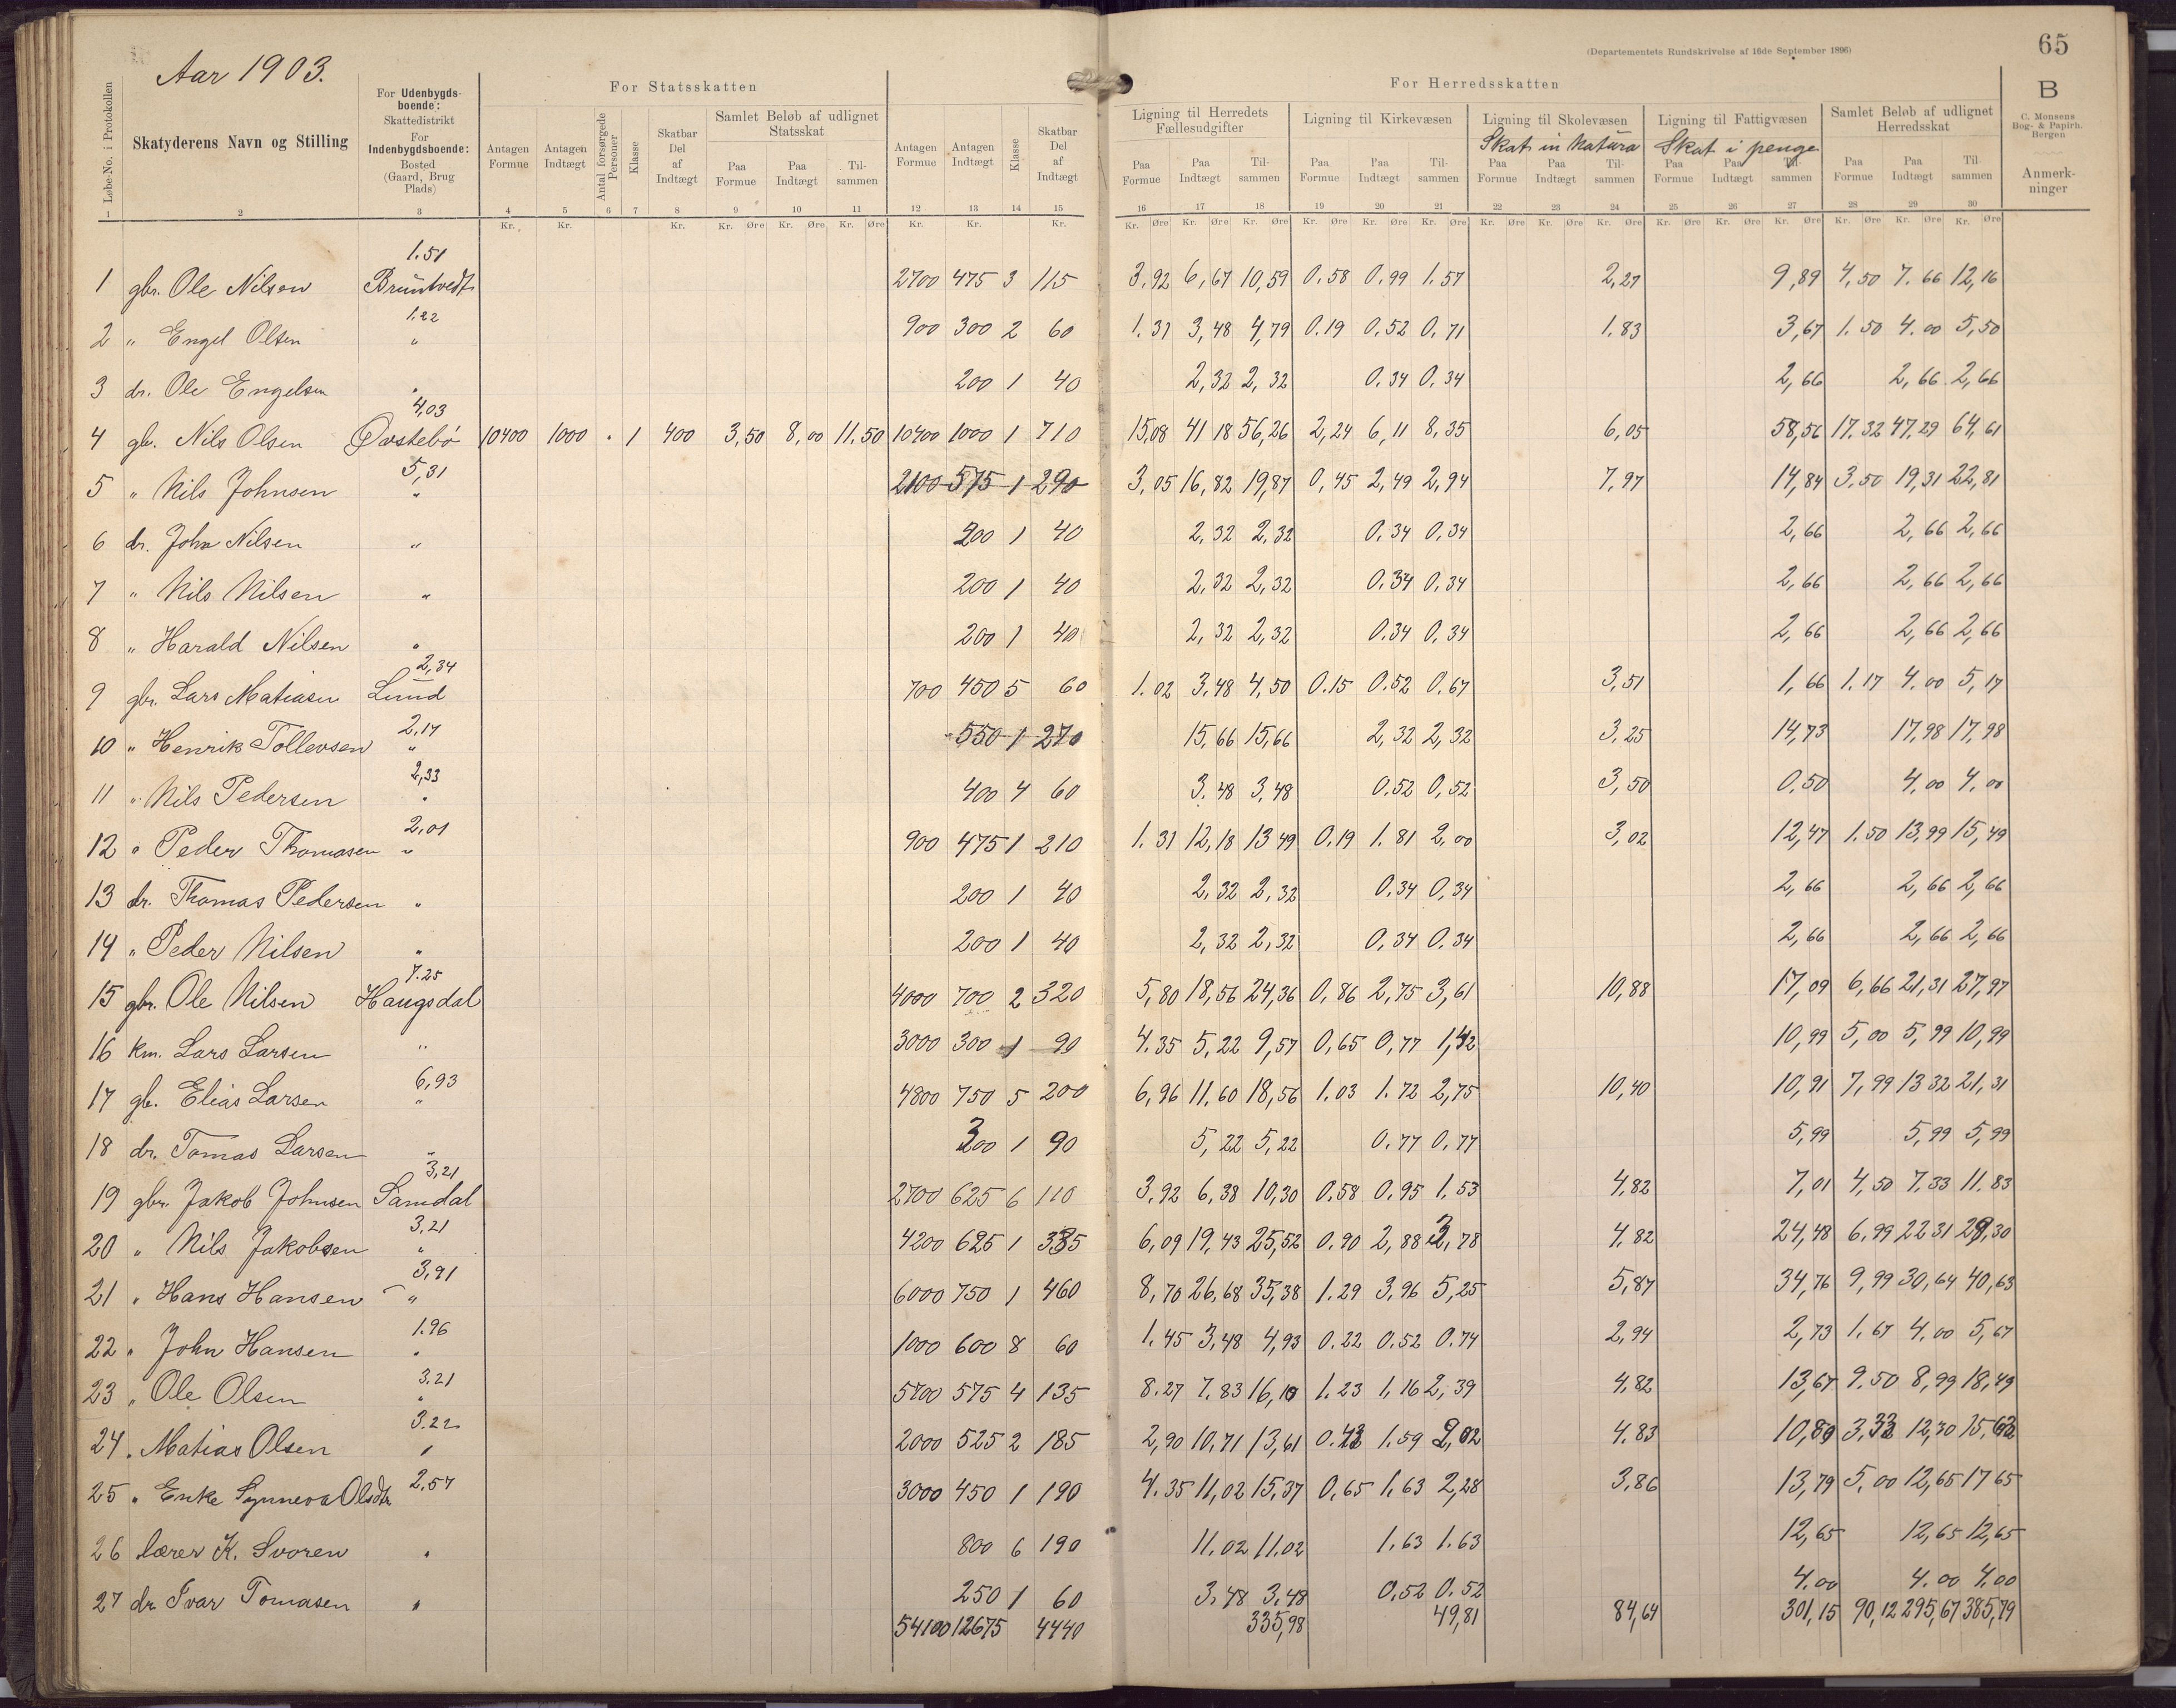 Aar 1903.
(Departementets Rundskrivelse af 16de September 1896)
65
B
C. Monsens Bog- & Papirh. Bergen
For Statsskatten
For Herredsskatten
Løbe-No. i Protokollen | Skatyderens Navn og Stilling | For Udenbygdsboende: Skattedistrikt For Indenbygdsboende: Bosted (Gaard, Brug Plads) | Antagen Formue | Antagen Indtægt | Antal forsørgede Personer | Klasse | Skatbar Del af Indtægt | Samlet Beløb af udlignet Statsskat | Paa Formue | Paa Indtægt | Tilsammen | Antagen Formue | Antagen Indtægt | Klasse | Skatbar Del af Indtægt
Ligning til Herredets Fællesudgifter | Ligning til Kirkevæsen | Ligning til Skolevæsen Skat in Natura | Ligning til Fattigvæsen Skat i penge | Samlet Beløb af udlignet Herredsskat | Anmerkninger
Paa Formue | Paa Indtægt | Tilsammen | Paa Formue | Paa Indtægt | Tilsammen | Paa Formue | Paa Indtægt | Tilsammen | Paa Formue | Paa Indtægt | Tilsammen | Paa Formue | Paa Indtægt | Tilsammen
1 2 3 4 5 6 7 8 9 10 11 12 13 14 15 16 17 18 19 20 21 22 23 24 25 26 27 28 29 30
Kr. Kr. Kr. Kr. Øre Kr. Øre Kr. Øre Kr. Kr. Kr. Kr. Øre Kr. Øre Kr. Øre Kr. Øre Kr. Øre Kr. Øre Kr. Øre Kr. Øre Kr. Øre Kr. Øre Kr. Øre Kr. Øre Kr. Øre Kr. Øre Kr. Øre
1.51
1 gbr. Ole Nilsen Bruntvedt 2700 475 3 115 3,92 6,67 10,59 0.58 0.99 1.57 2,27 9,89 4,50 7.66 12,16
1.22
2 " Engel Olsen " 900 300 2 60 1.31 3,48 4,79 0.19 0.52 0,71 1.83 3,67 1.50 4.00 5,50
3 dr. Ole Engelsen " 200 1 40 2,32 2,32 0.34 0,34 2,66 2,66 2,66
4,03
4 gb. Nils Olsen Østebø 10400 1000 . 1 400 3,50 8,00 11,50 10400 1000 1 710 15,08 41 18 56,26 2,24 6,11 8,35 6,05 58,56 17.32 47.29 64,61
5,31
5 " Nils Johnsen " 2100 575 1 290 3,05 16,82 19,87 0,45 2,49 2,94 7,97 14,84 3,50 19,31 22,81
6 dr. John Nilsen " 200 1 40 2,32 2,32 0.34 0,34 2,66 2,66 2,66
7 " Nils Nilsen " 200 1 40 2,32 2,32 0.34 0,34 2,66 2,66 2,66
8 " Harald Nilsen " 200 1 40 2,32 2,32 0.34 0,34 2,66 2,66 2,66
2,34
9 gbr. Lars Matiasen Lund 700 450 5 60 1.02 3,48 4,50 0.15 0.52 0,67 3,51 1,66 1.17 4.00 5,17
2,17
10 " Henrik Tollevsen " 550 1 270 15,66 15,66 2,32 2,32 3,25 14,73 17,98 17,98
2,33
11 " Nils Pedersen " 400 4 60 3.48 3,48 0.52 0,52 3,50 0.50 4,00 4,00
2,01
12 " Peder Thomasen " 900 475 1 210 1.31 12,18 13 49 0.19 1.81 2,00 3,02 12,47 1.50 13,99 15,49
13 dr. Thomas Pedersen " 200 1 40 2,32 2,32 0.34 0,34 2,66 2,66 2,66
14 " Peder Nilsen " 200 1 40 2,32 2,32 0,34 0,34 2,66 2,66 2,66
7.25
15 gbr. Ole Nilsen Haugsdal 4000 700 2 320 5,80 18,56 24,36 0,86 2,75 3,61 10,88 17,09 6,66 21,31 27,97
16 km. Lars Larsen " 3000 300 1 90 4.35 5,22 9,57 0,65 0,77 1,42 10,99 5,00 5,99 10,99
6,93
17 gb. Elias Larsen " 4800 750 5 200 6,96 11.60 18,56 1.03 1.72 2,75 10,40 10,91 7,99 13 32 21,31
18 dr. Tomas Larsen " 300 1 90 5,22 5,22 0.77 0.77 5,99 5,99 5,99
3,21
19 gbr. Jakob Johnsen Samdal 2700 625 6 110 3,92 6,38 10,30 0.58 0.95 1,53 4,82 7,01 4,50 7.33 11.83
3,21
20 " Nils Jakobsen " 4200 625 1 335 6,09 19,43 25,52 0.90 2,88 3,78 4,82 24,48 6,99 22 31 29,30
3,91
21 " Hans Hansen " 6000 750 1 460 8,70 26,68 35,38 1.29 3,96 5,25 5,87 34,76 9,99 30,64 40,63
1.96
22 " John Hansen " 1000 600 8 60 1.45 3,48 4,93 0.22 0.52 0.74 2,94 2,73 1.67 4,00 5,67
3,21
23 " Ole Olsen " 5700 575 4 135 8.27 7.83 16,10 1.23 1,16 2,39 4,82 13,67 9,50 8,99 18,49
3.22
24 " Matias Olsen " 2000 525 2 185 2,90 10,71 13,61 0.43 1.59 2,02 4.83 10,80 3,33 12,30 15,63
2,57
25 " Enke Synneva Olsdtr. 3000 450 1 190 4.35 11,02 15,37 0,65 1,63 2,28 3,86 13,79 5,00 12,65 17 65
26 lærer K. Svoren " 800 6 190 11.02 11.02 1.63 1.63 12,65 12,65 12,65
27 dr. Ivar Tomasen " 250 1 60 3,48 3,48 0,52 0.52 4.00 4.00 4,00
54100 12675 4440 335,98 49,81 84,64 301,15 90,12 295,67 385,79